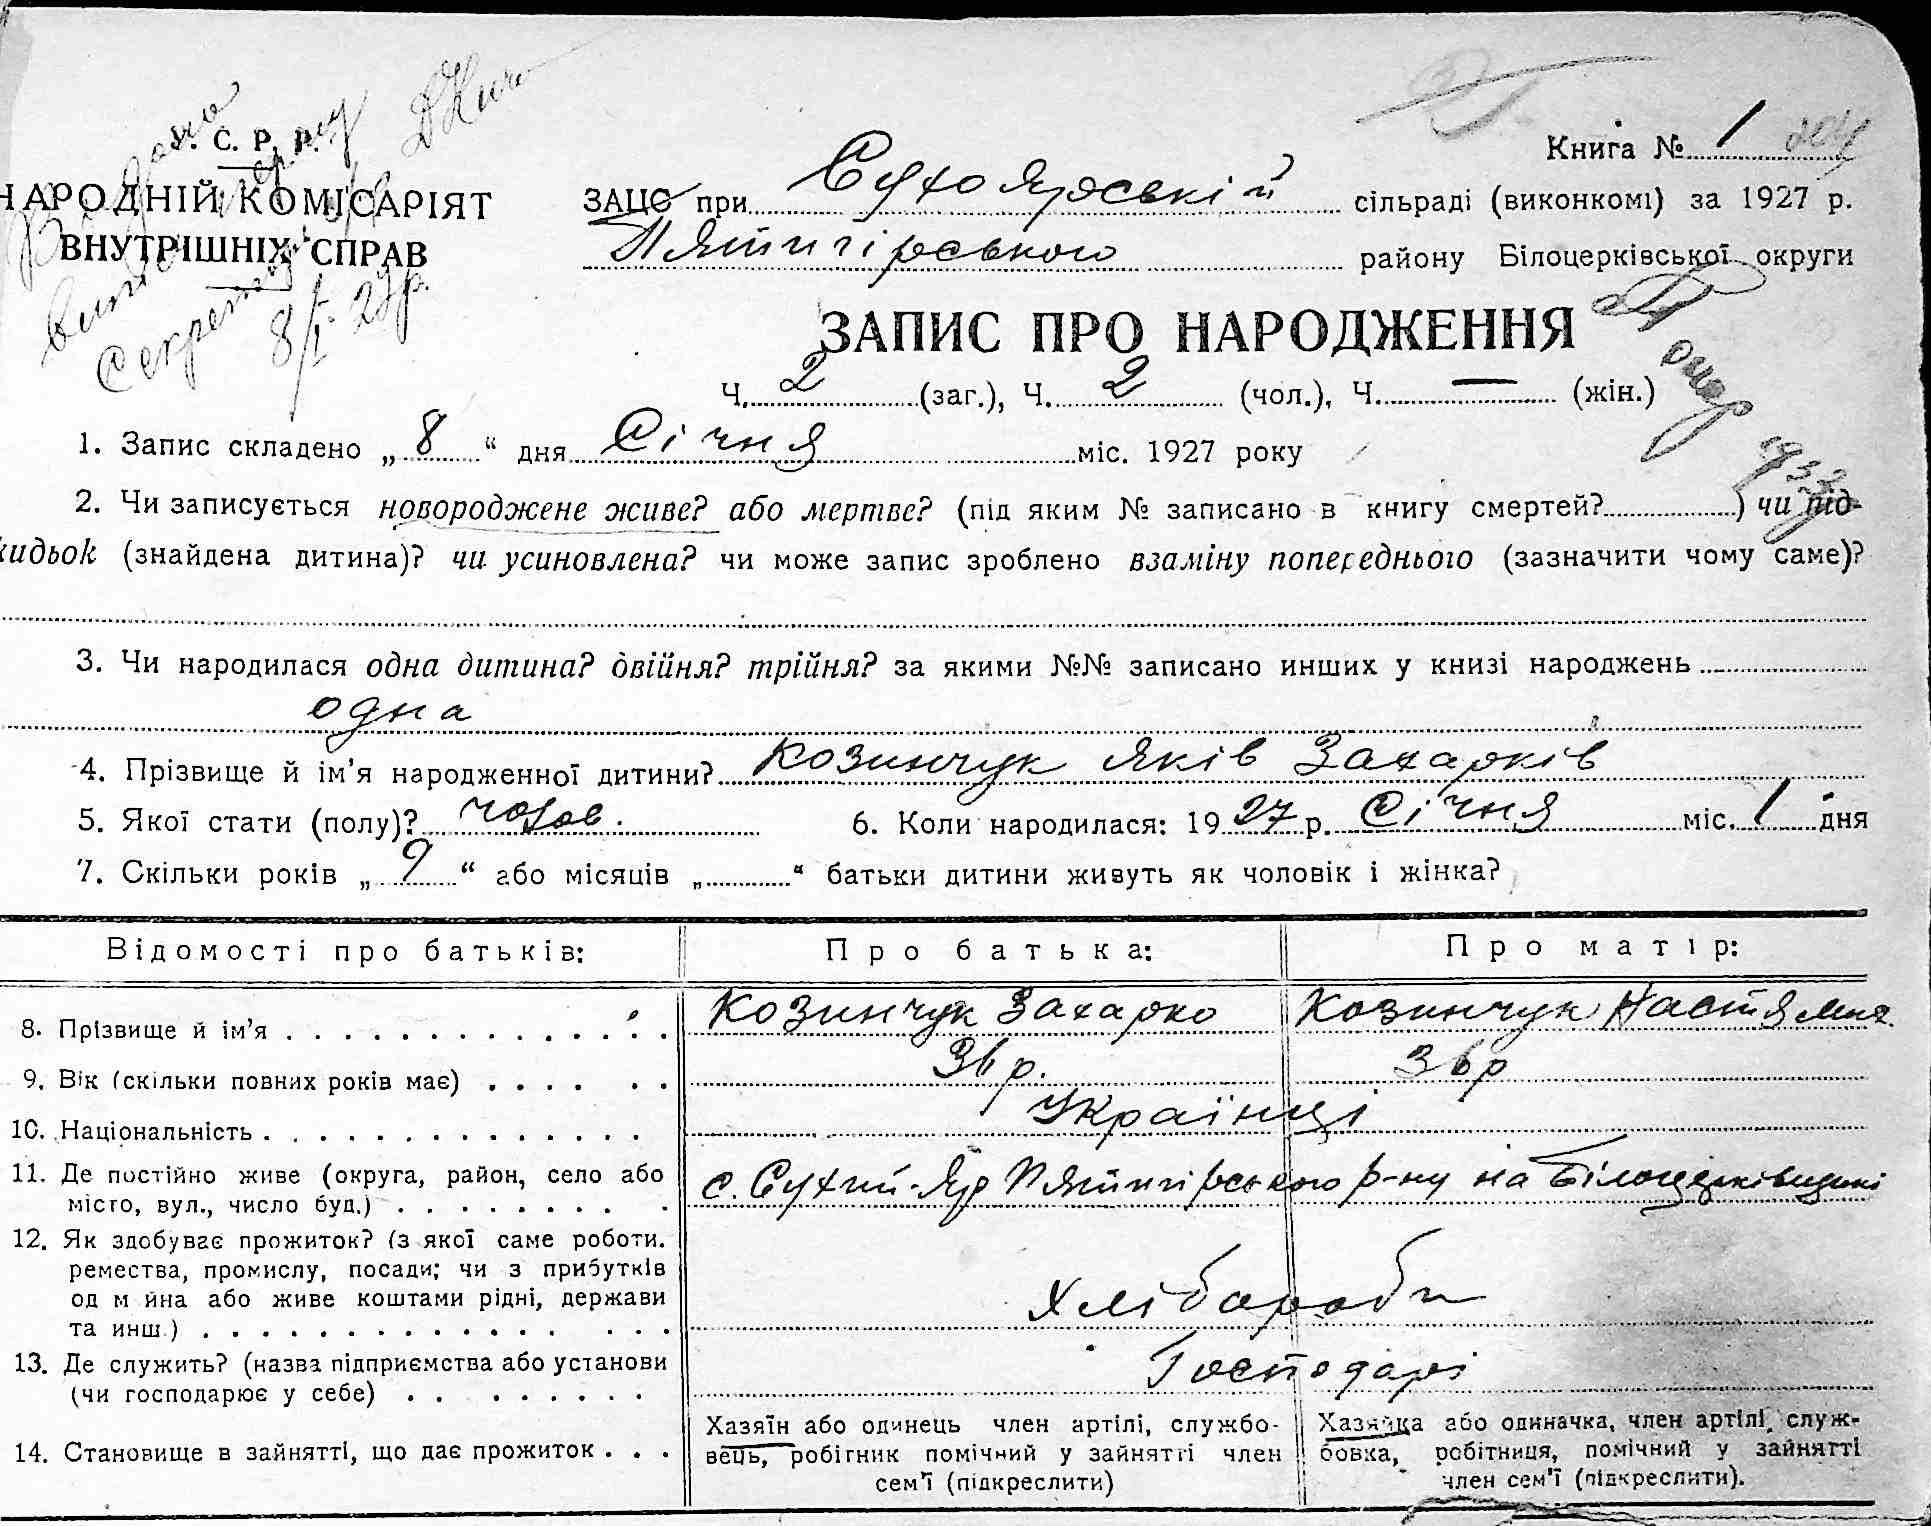 У. С. Р. Р.
НАРОДНІЙ КОМІСАРІЯТ
ВНУТРІШНІХ СПРАВ
Видано
витяг
Секретар
8/I-27р.
Книга № 1
ЗАЦС при Сухоярській сільраді (виконкомі) за 1927 р.
Пятигірського району Білоцерківської округи
ЗАПИС ПРО НАРОДЖЕННЯ
Ч. 2 (заг.), Ч. 2 (чол.), Ч. — (жін.)
Помер 1933
1. Запис складено „ 8 “ дня Січня міс. 1927 року
2. Чи записується новороджене живе? або мертве? (під яким № записано в книгу смертей? ) чи під-
кидьок (знайдена дитина)? чи усиновлена? чи може запис зроблено взаміну попереднього (зазначити чому саме)?
3. Чи народилася одна дитина? двійня? трійня? за якими №№ записано инших у книзі народжень
одна
4. Прізвище й ім’я народженної дитини? Козинчук Яків Захарків
5. Якої стати (полу)? чолов. 6. Коли народилася: 1927 р. Січня міс. 1 дня
7. Скільки років „ 9 “ або місяців „ “ батьки дитини живуть як чоловік і жінка?
Відомості про батьків: Про батька: Про матір:
8. Прізвище й ім’я Козинчук Захарко Козинчук Настя
9. Вік (скільки повних років має) 36 р. 36 р
10. Національність Українці
11. Де постійно живе (округа, район, село або
місто, вул., число буд.) с. Сухий-Яр Пятигірського р-ну на Білоцерківщині
12. Як здобуває прожиток? (з якої саме роботи.
ремества, промислу, посади; чи з прибутків
од м йна або живе коштами рідні, держави
та инш.) Хлібароби
13. Де служить? (назва підприємства або установи
(чи господарює у себе) Господарі
14. Становище в зайнятті, що дає прожиток
Хазяїн або одинець член артілі, службо-
вець, робітник помічний у зайнятті член
сем’ї (підкреслити)
Хазяйка або одиначка, член артілі, служ-
бовка, робітниця, помічний у зайнятті
член сем’ї (підкреслити).